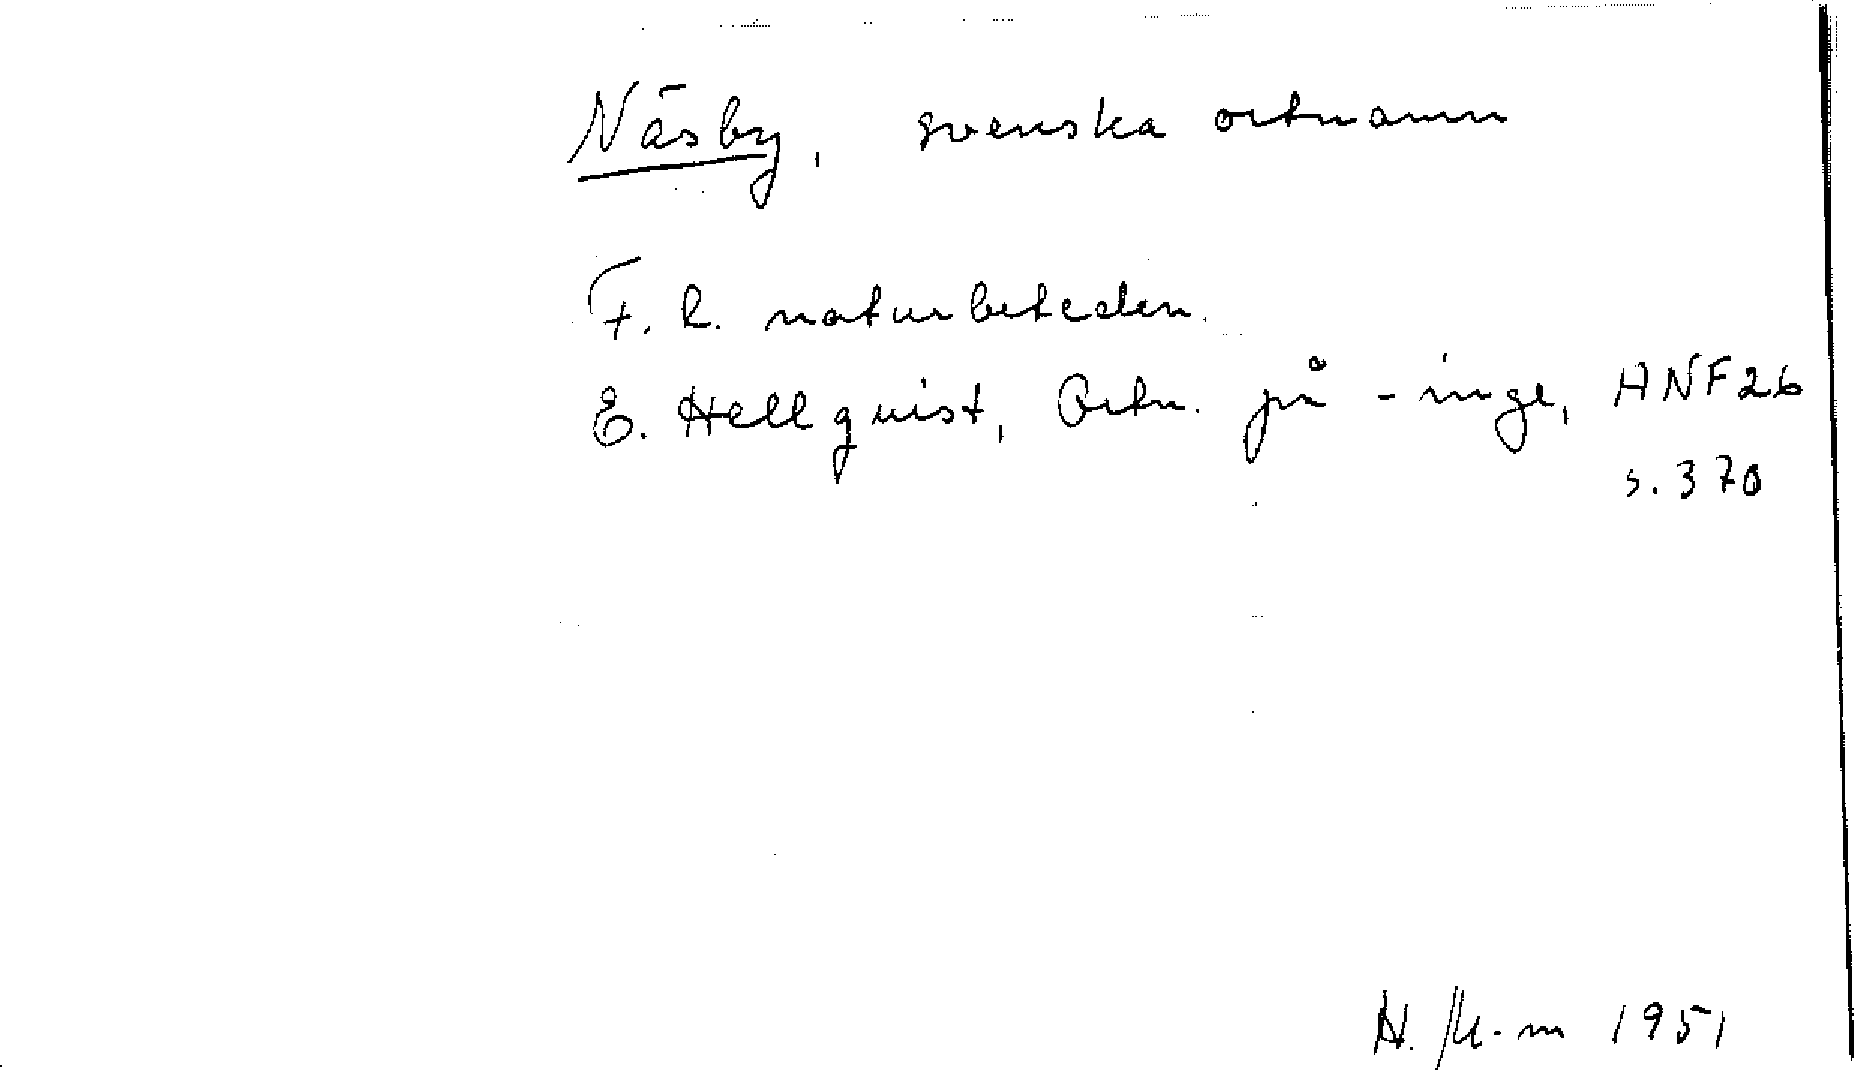 Näsby, svenska ortnamn
F. l. naturbeteden.
E. Hellquist, Ortn. på -inge, ANF 26
s. 370
H. M-m 1951